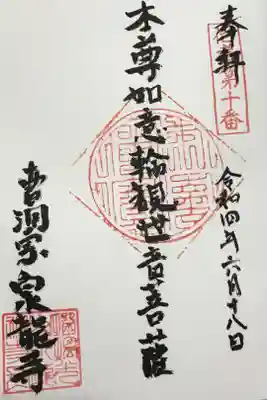 奉拝
第十番
令和四年六月十八日
本尊如意輪観世音菩薩
曹洞宗泉龍寺